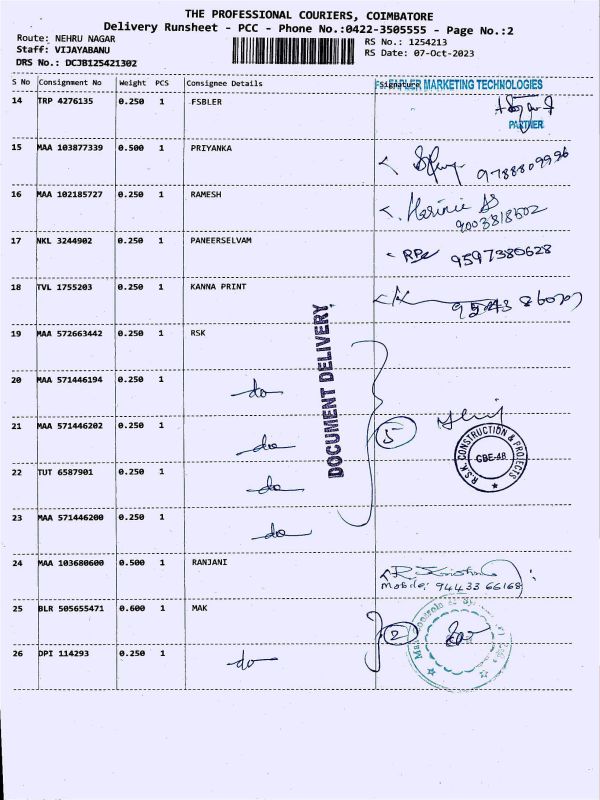 THE PROFESSIONAL COURIERS, COIMBATORE
Delivery Runsheet - PCC - Phone No.:0422-3505555 - Page No.:2
Route: NEHRU NAGAR
RS No.: 1254213
Staff: VIJAYABANU
RS Date: 07-Oct-2023
DRS No.: DCJB125421302
S No Consignment No Weight PCS Consignee Details Signature
MARKETING TECHNOLOGIES
14 TRP 4276135 0.250 1 FSBLER
PARTNER
15 MAA 103877339 0.500 1 PRIYANKA
9788809996
16 MAA 102185727 0.250 1 RAMESH
Harinie
9003818502
17 NKL 3244902 0.250 1 PANEERSELVAM
9597380628
18 TVL 1755203 0.250 1 KANNA PRINT
19 MAA 572663442 0.250 1 RSK
DOCUMENT DELIVERY
20 MAA 571446194 0.250 1 do
21 MAA 571446202 0.250 1 do 5
R.S.K. CONSTRUCTION & PROJECTS
CBE-48
22 TUT 6587901 0.250 1 do
23 MAA 571446200 0.250 1 do
24 MAA 103680600 0.500 1 RANJANI
Mobile: 94433 66168
25 BLR 505655471 0.600 1 MAK 2
26 DPI 114293 0.250 1 do